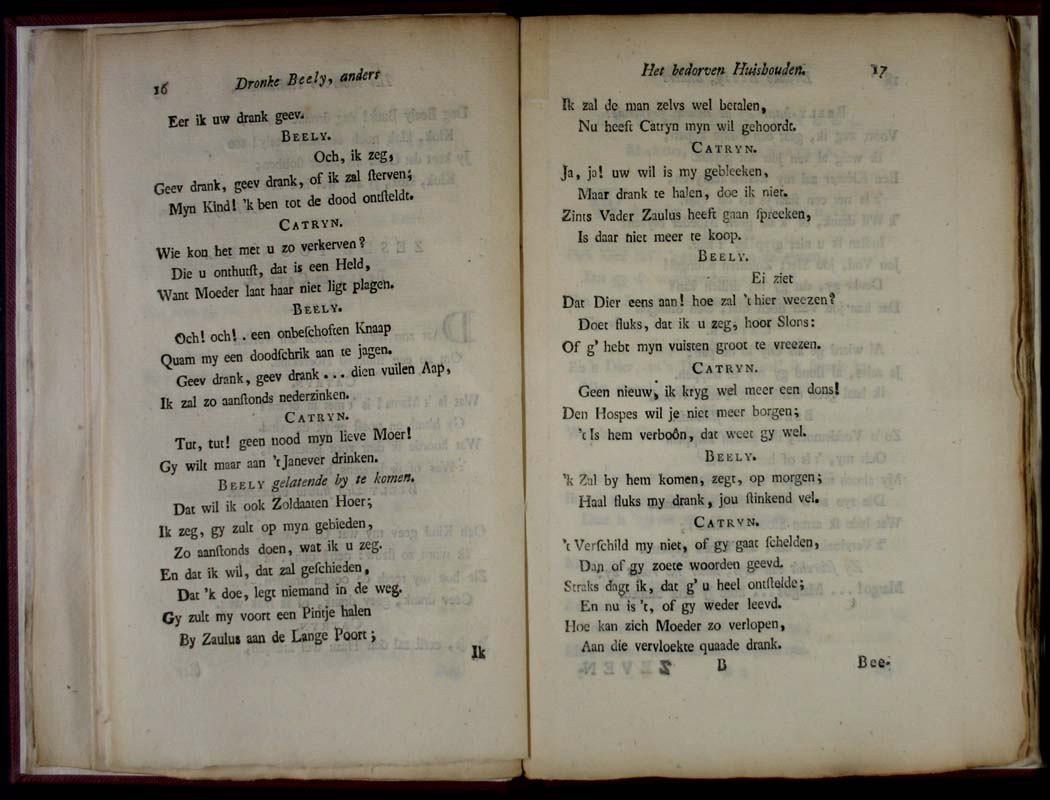 16 Dronke Beely, anders
Eer ik uw drank geev.
BEELY.
Och, ik zeg,
Geev drank, geev drank, of ik zal ſterven;
Myn Kind! 'k ben tot de dood ontſteldt.
CATRYN.
Wie kon het met u zo verkerven?
Die u onthutſt, dat is een Held,
Want Moeder laat haar niet ligt plagen.
BEELY.
Och! och! . een onbeſchoften Knaap
Quam my een doodſchrik aan te jagen.
Geev drank, geev drank ... dien vuilen Aap,
Ik zal zo aanſtonds nederzinken.
CATRYN.
Tut, tut! geen nood myn lieve Moer!
Gy wilt maar aan 't Janever drinken.
BEELY gelatende by te komen.
Dat wil ik ook Zoldaaten Hoer;
Ik zeg, gy zult op myn gebieden,
Zo aanſtonds doen, wat ik u zeg.
En dat ik wil, dat zal geſchieden,
Dat 'k doe, legt niemand in de weg.
Gy zult my voort een Pintje halen
By Zaulus aan de Lange Poort;
Ik
Het bedorven Huishouden. 17
Ik zal de man zelvs wel betalen,
Nu heeft Catryn myn wil gehoordt.
CATRYN.
Ja, ja! uw wil is my gebleeken,
Maar drank te halen, doe ik niet.
Zints Vader Zaulus heeft gaan ſpreeken,
Is daar niet meer te koop.
BEELY.
Ei ziet
Dat Dier eens aan! hoe zal 't hier weezen?
Doet fluks, dat ik u zeg, hoor Slons:
Of g' hebt myn vuisten groot te vreezen.
CATRYN.
Geen nieuw, ik kryg wel meer een dons!
Den Hospes wil je niet meer borgen;
't Is hem verboôn, dat weet gy wel.
BEELY.
'k Zal by hem komen, zegt, op morgen;
Haal fluks my drank, jou ſtinkend vel.
CATRYN.
't Verſchild my niet, of gy gaat ſchelden,
Dan of gy zoete woorden geevd.
Straks dagt ik, dat g' u heel ontſtelde;
En nu is 't, of gy weder leevd.
Hoe kan zich Moeder zo verlopen,
Aan die vervloekte quaade drank.
B Bee-